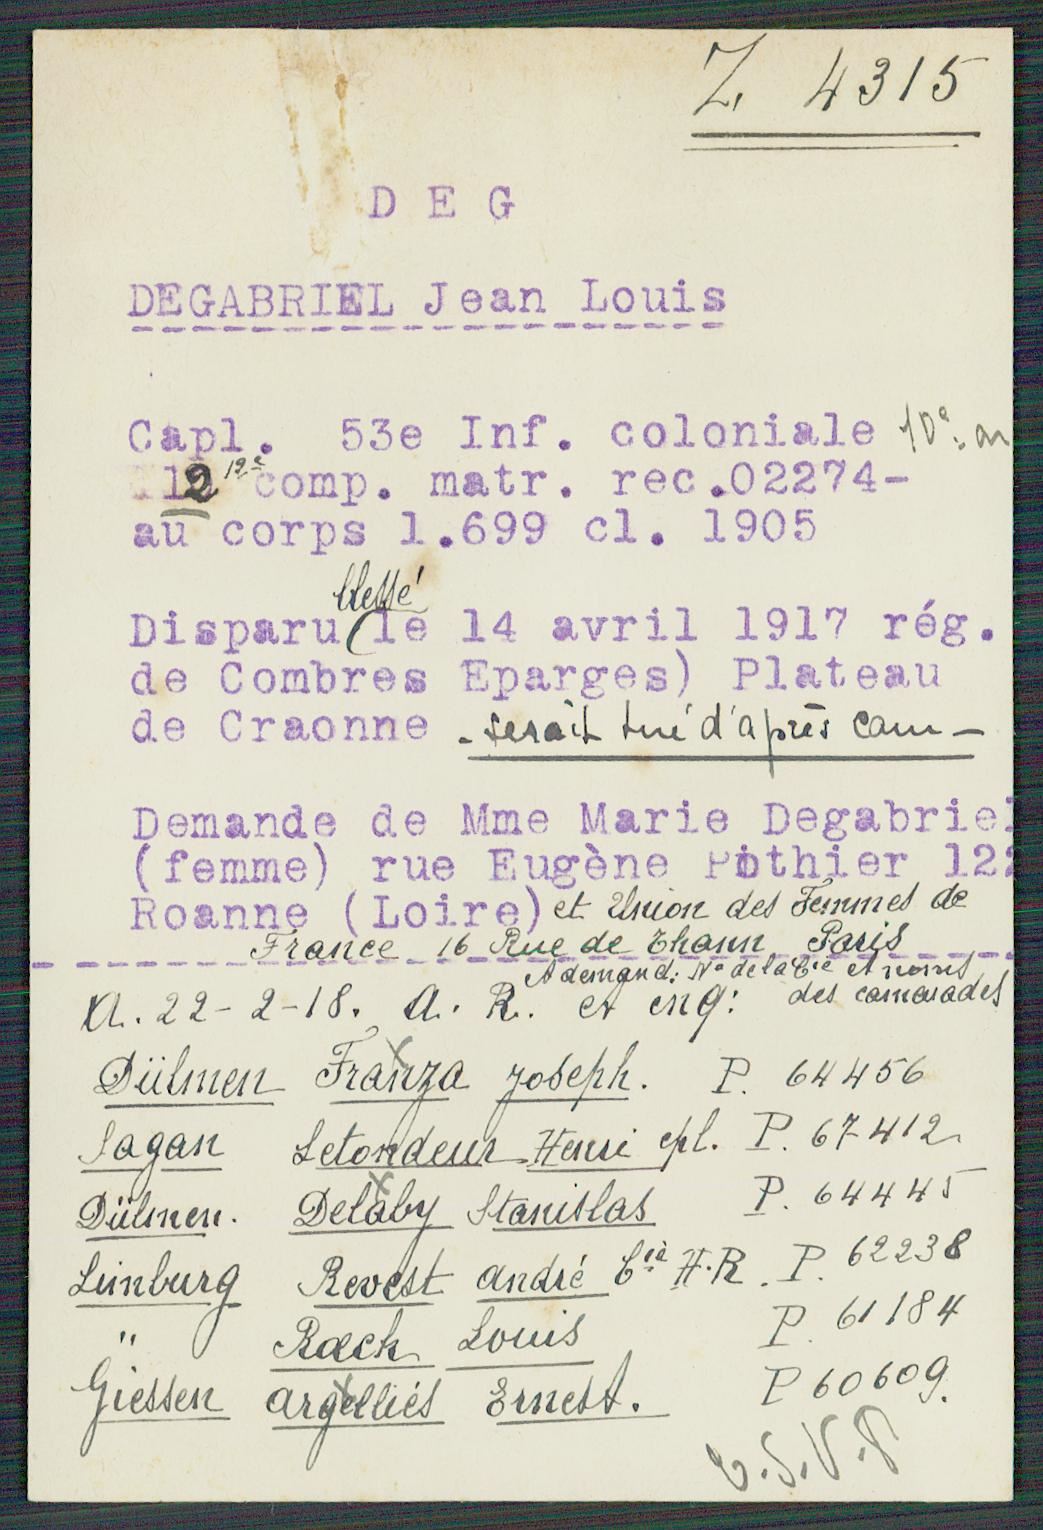 Z. 4315
D E G
DEGABRIEL Jean Louis
Capl. 53e Inf. coloniale 10e
12 12e comp. matr. rec.02274-
au corps 1.699 cl. 1905
blessé
Disparu (le 14 avril 1917 rég.
de Combres Eparges) Plateau
de Craonne - serait tué d'après cam -
Demande de Mme Marie Degabriel
(femme) rue Eugène Pothier 122
Roanne (Loire) et Union des Femmes de
France 16 Rue de Thann Paris
A demand: No de la Cie et noms
A. 22-2-18. A. R. et enq: des camarades
Dülmen Franza Joseph. P. 64456
Sagan Letondeur Henri cpl. P. 67412
Dülmen. Delaby Stanislas P. 64445
Limburg Revest André Cie H.R. P. 62238
" Raeck Louis P. 61184
Giessen Argelliés Ernest. P 60609.
T.S.V.P